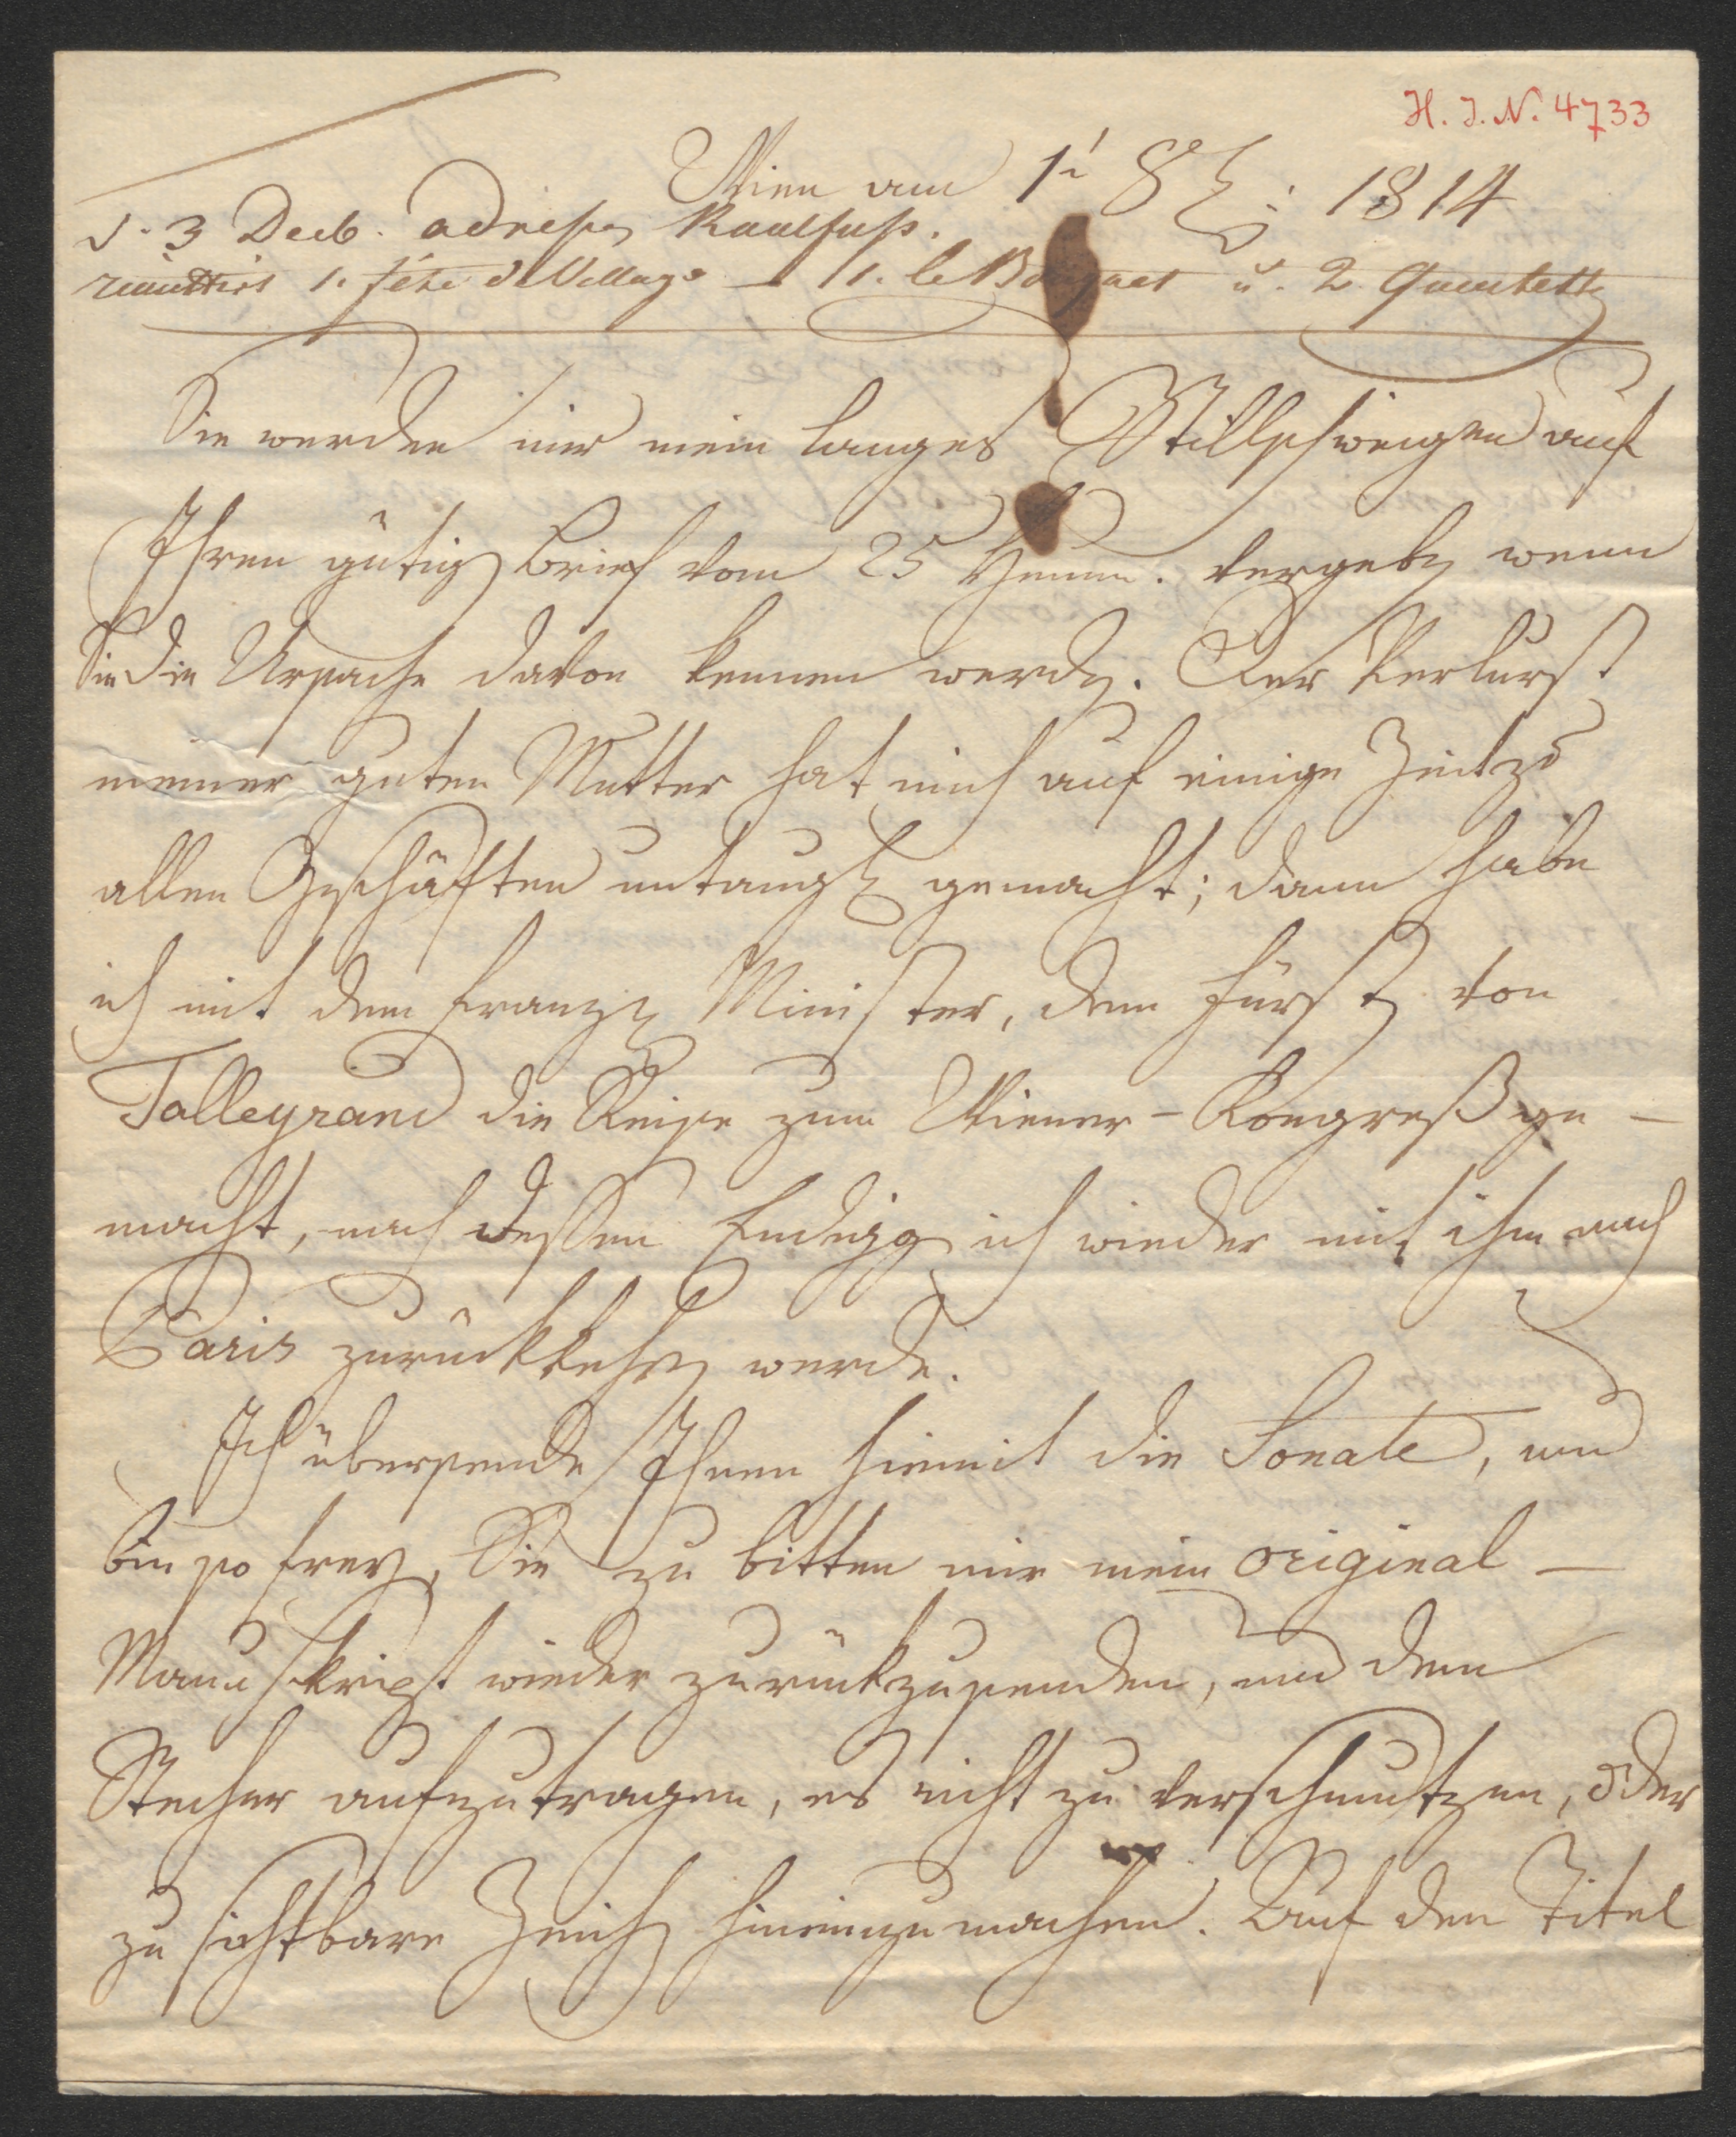 H. I. N. 4733
Wien am 1t 8br: 1814
d. 3 Decb. adresse Kaulfuß.
1. fête de Village – 1. le Bouquet u. 2 Quintette
Sie werden mir mein langes Stillschweigen auf
Ihren gütig Brief vom 25 vergeben wenn
Sie die Ursache davon kennen werden. Der Verlurst
meiner guten Mutter hat mich auf einige Zeit zu
allen Geschäften untaugl gemacht; dann habe
ich mit dem franz Minister, dem Fürsten von
Talleyrand die Reise zum Wiener-Kongreß ge-
macht, nach dessen Endigg ich wieder mit ihm nach
Paris zurückkehren werde.
Ich übersende Ihnen hiemit die Sonate, und
bin so frey, Sie zu bitten mir mein original-
Manuskript wieder zurückzusenden, und dem
Stecher aufzutragen, es nicht zu verschmutzen, oder
zu sichtbare Zeichen hineinzumachen. Auf den Titel